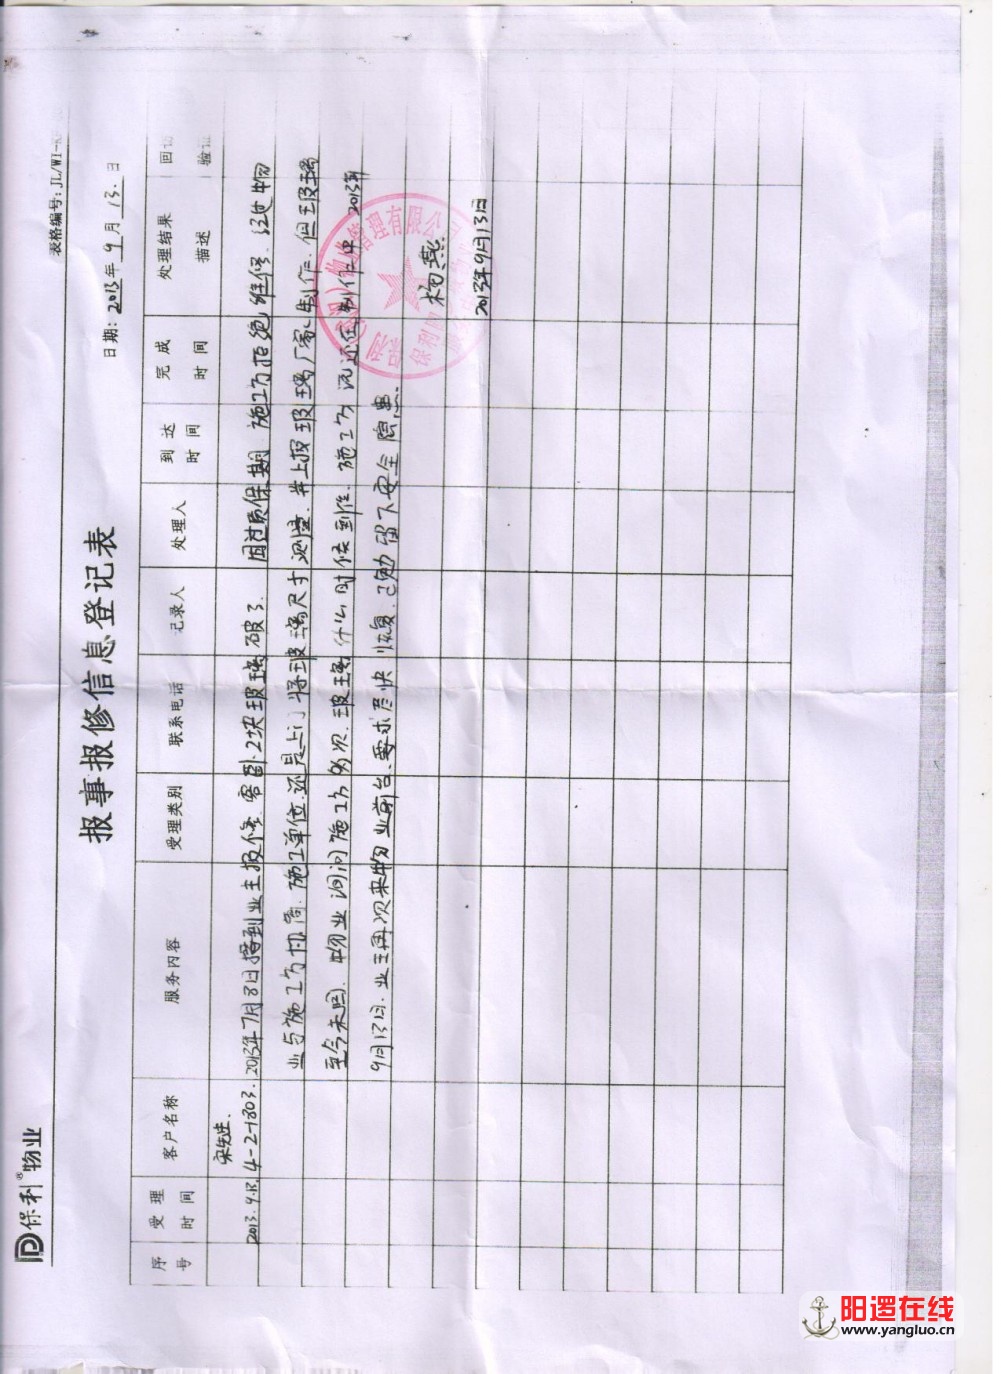 保利®物业
表格编号:JL/WI-
报事报修信息登记表
日期:2013年9月13.日
序号 受理时间 客户名称 服务内容 受理类别 联系电话 记录人 处理人 到达时间 完成时间 处理结果描述 回访验证
宋先生.
2013.9.13. 4-2-1803. 2013年7月8日接到业主报修 客卧.2块玻璃破了. 因过质保期 施工方拒绝维修. 经过物
业与施工方协商. 施工单位.还是上门将玻璃尺寸测量.并上报玻璃厂家制作.但玻璃
至今未回. 物业询问施工方多次.玻璃什么时候到位.施工方说还在制作中 2013年
9月13日.业主再次来物业前台.要求尽快恢复.已免留下安全隐患.
杨燕.
2013年9月13日
物业管理有限公司
保利
阳逻在线
www.yangluo.cn